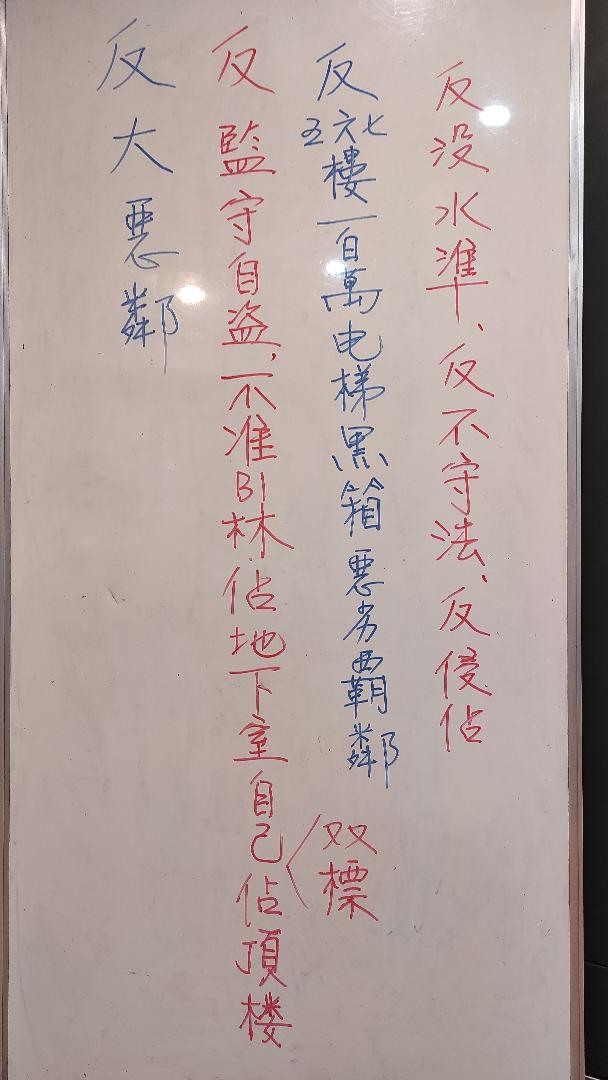 反没水準、反不守法、反侵佔
反五六七樓一百萬电梯黑箱惡劣覇鄰
双標
反監守自盗,不准B1林佔地下室自己佔頂楼
反大惡鄰